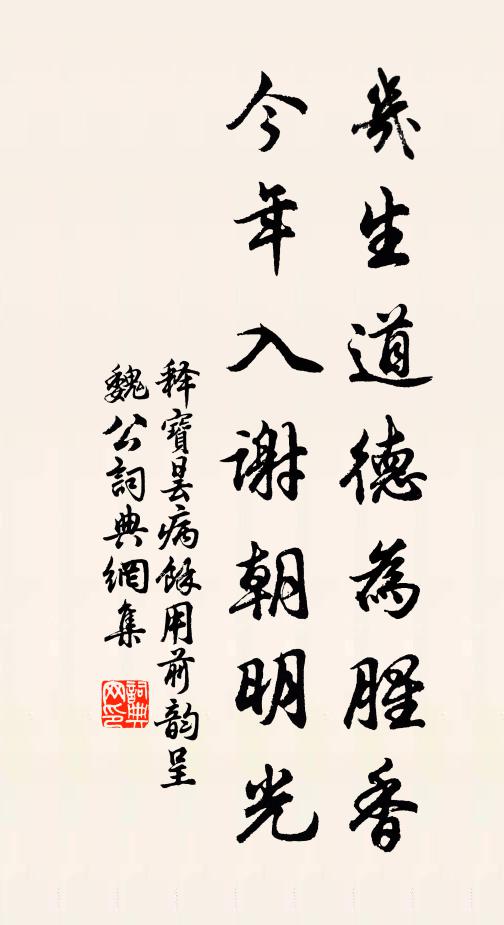 幾生道德為腥香
今年入謝朝明光
釋寶曇病餘用前韵呈
魏公詞典網集
詞典網印